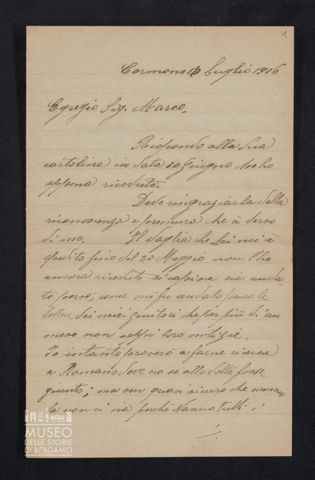 1
Cormons 16 Luglio 1916
Egregio Sig. Marco.
Rispondo alla Sua
cartolina in data 30 Giugno
appena ricevuta.
Devo ringraziarla della
riconoscenza e premura che à verso
di me. Il Vaglia che Lei mi à
spedito fino dal 20 Maggio non l'ho
ancora ricevuto si capisce sia anda-
to perso; come mi fu andato perso le
lettere dei miei genitori che per più di un
mese non seppi loro notizie.
Io intanto proverò a farne ricerca
a Romano se alle volte fosse
giunto; ma son quasi sicuro che
là non ci sia perchè
MUSEO
DELLE STORIE
DI BERGAMO